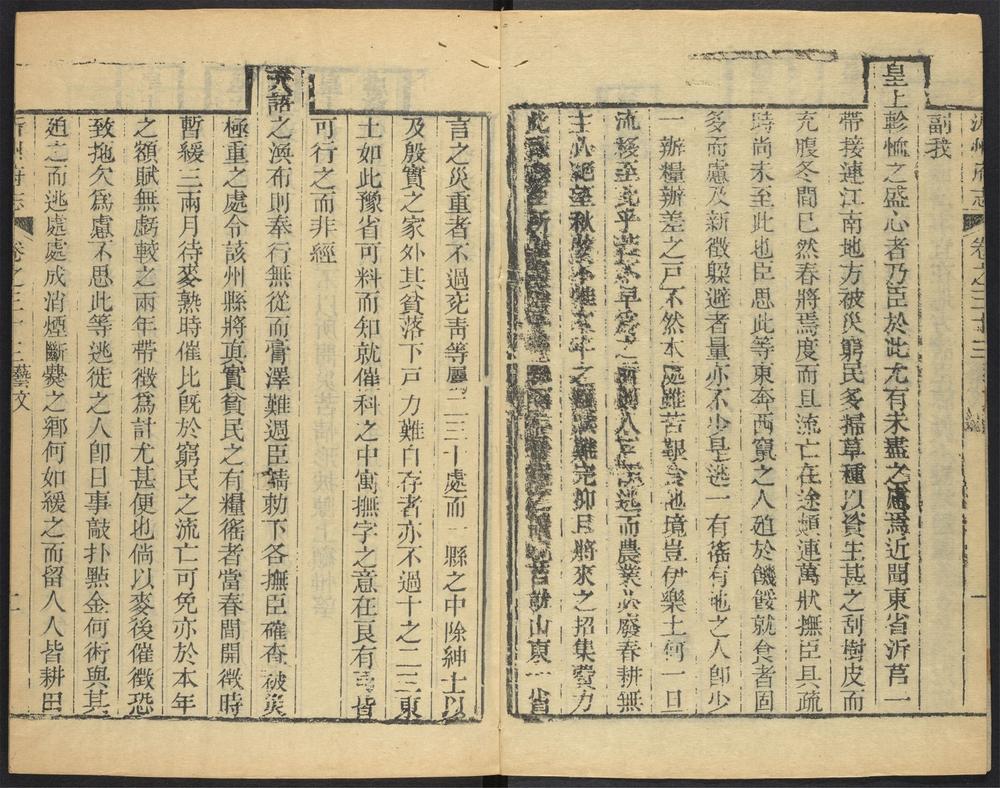 沂州府志 卷之三十三 一
副我
皇上軫恤之盛心者乃臣於此尤有未盡之慮焉近聞東省沂莒一
帶接連江南地方被災窮民多掃草種以資生甚之刮樹皮而
充腹冬間已然春將焉度而且流亡在途顛連萬狀撫臣具疏
時尚未至此也臣思此等東奔西竄之人殖於饑餒就食者固
多而慮及新徵躱避者量亦不少是逃一有徭有地之人即少
一辦糧辦差之戸不然本處雖苦艱食他境豈伊樂土何一日
流移至此乎逃而農業必廢春耕無
主八絶望秋之難完抑且將來之招集費力
苦獨山東一省
言之災重者不過兖靑等屬二三十處而一縣之中除紳士以
及殷實之家外其貧落下戸力難自存者亦不過十之二三東
土如此豫省可料而知就催科之中寓撫字之意在良有司皆
可行之而非經
天語之渙布則奉行無從而膏澤難週臣請勅下各撫臣確查被災
極重之處令該州縣將真實貧民之有糧徭者當春間開徵時
暫緩三兩月待麥熟時催比旣於窮民之流亡可免亦於本年
之額賦無虧較之兩年帶徵爲計尤甚便也倘以麥後催徵恐
致拖欠爲慮不思此等逃徙之人即日事敲扑點金何術與其
廹之而逃處處成消煙斷爨之鄉何如緩之而留人人皆耕田
沂州府志 卷之三十三 藝文 二